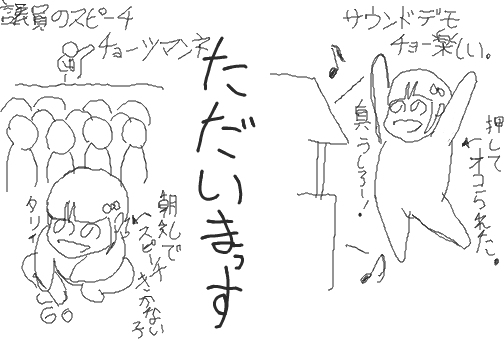 議員のスピーチ
チョーツマンネ
朝礼で
スピーチ
きかない
子
タリィ
ただいまっす
サウンドデモ
チョー楽しい。
真うしろー!
押して
オコられた。